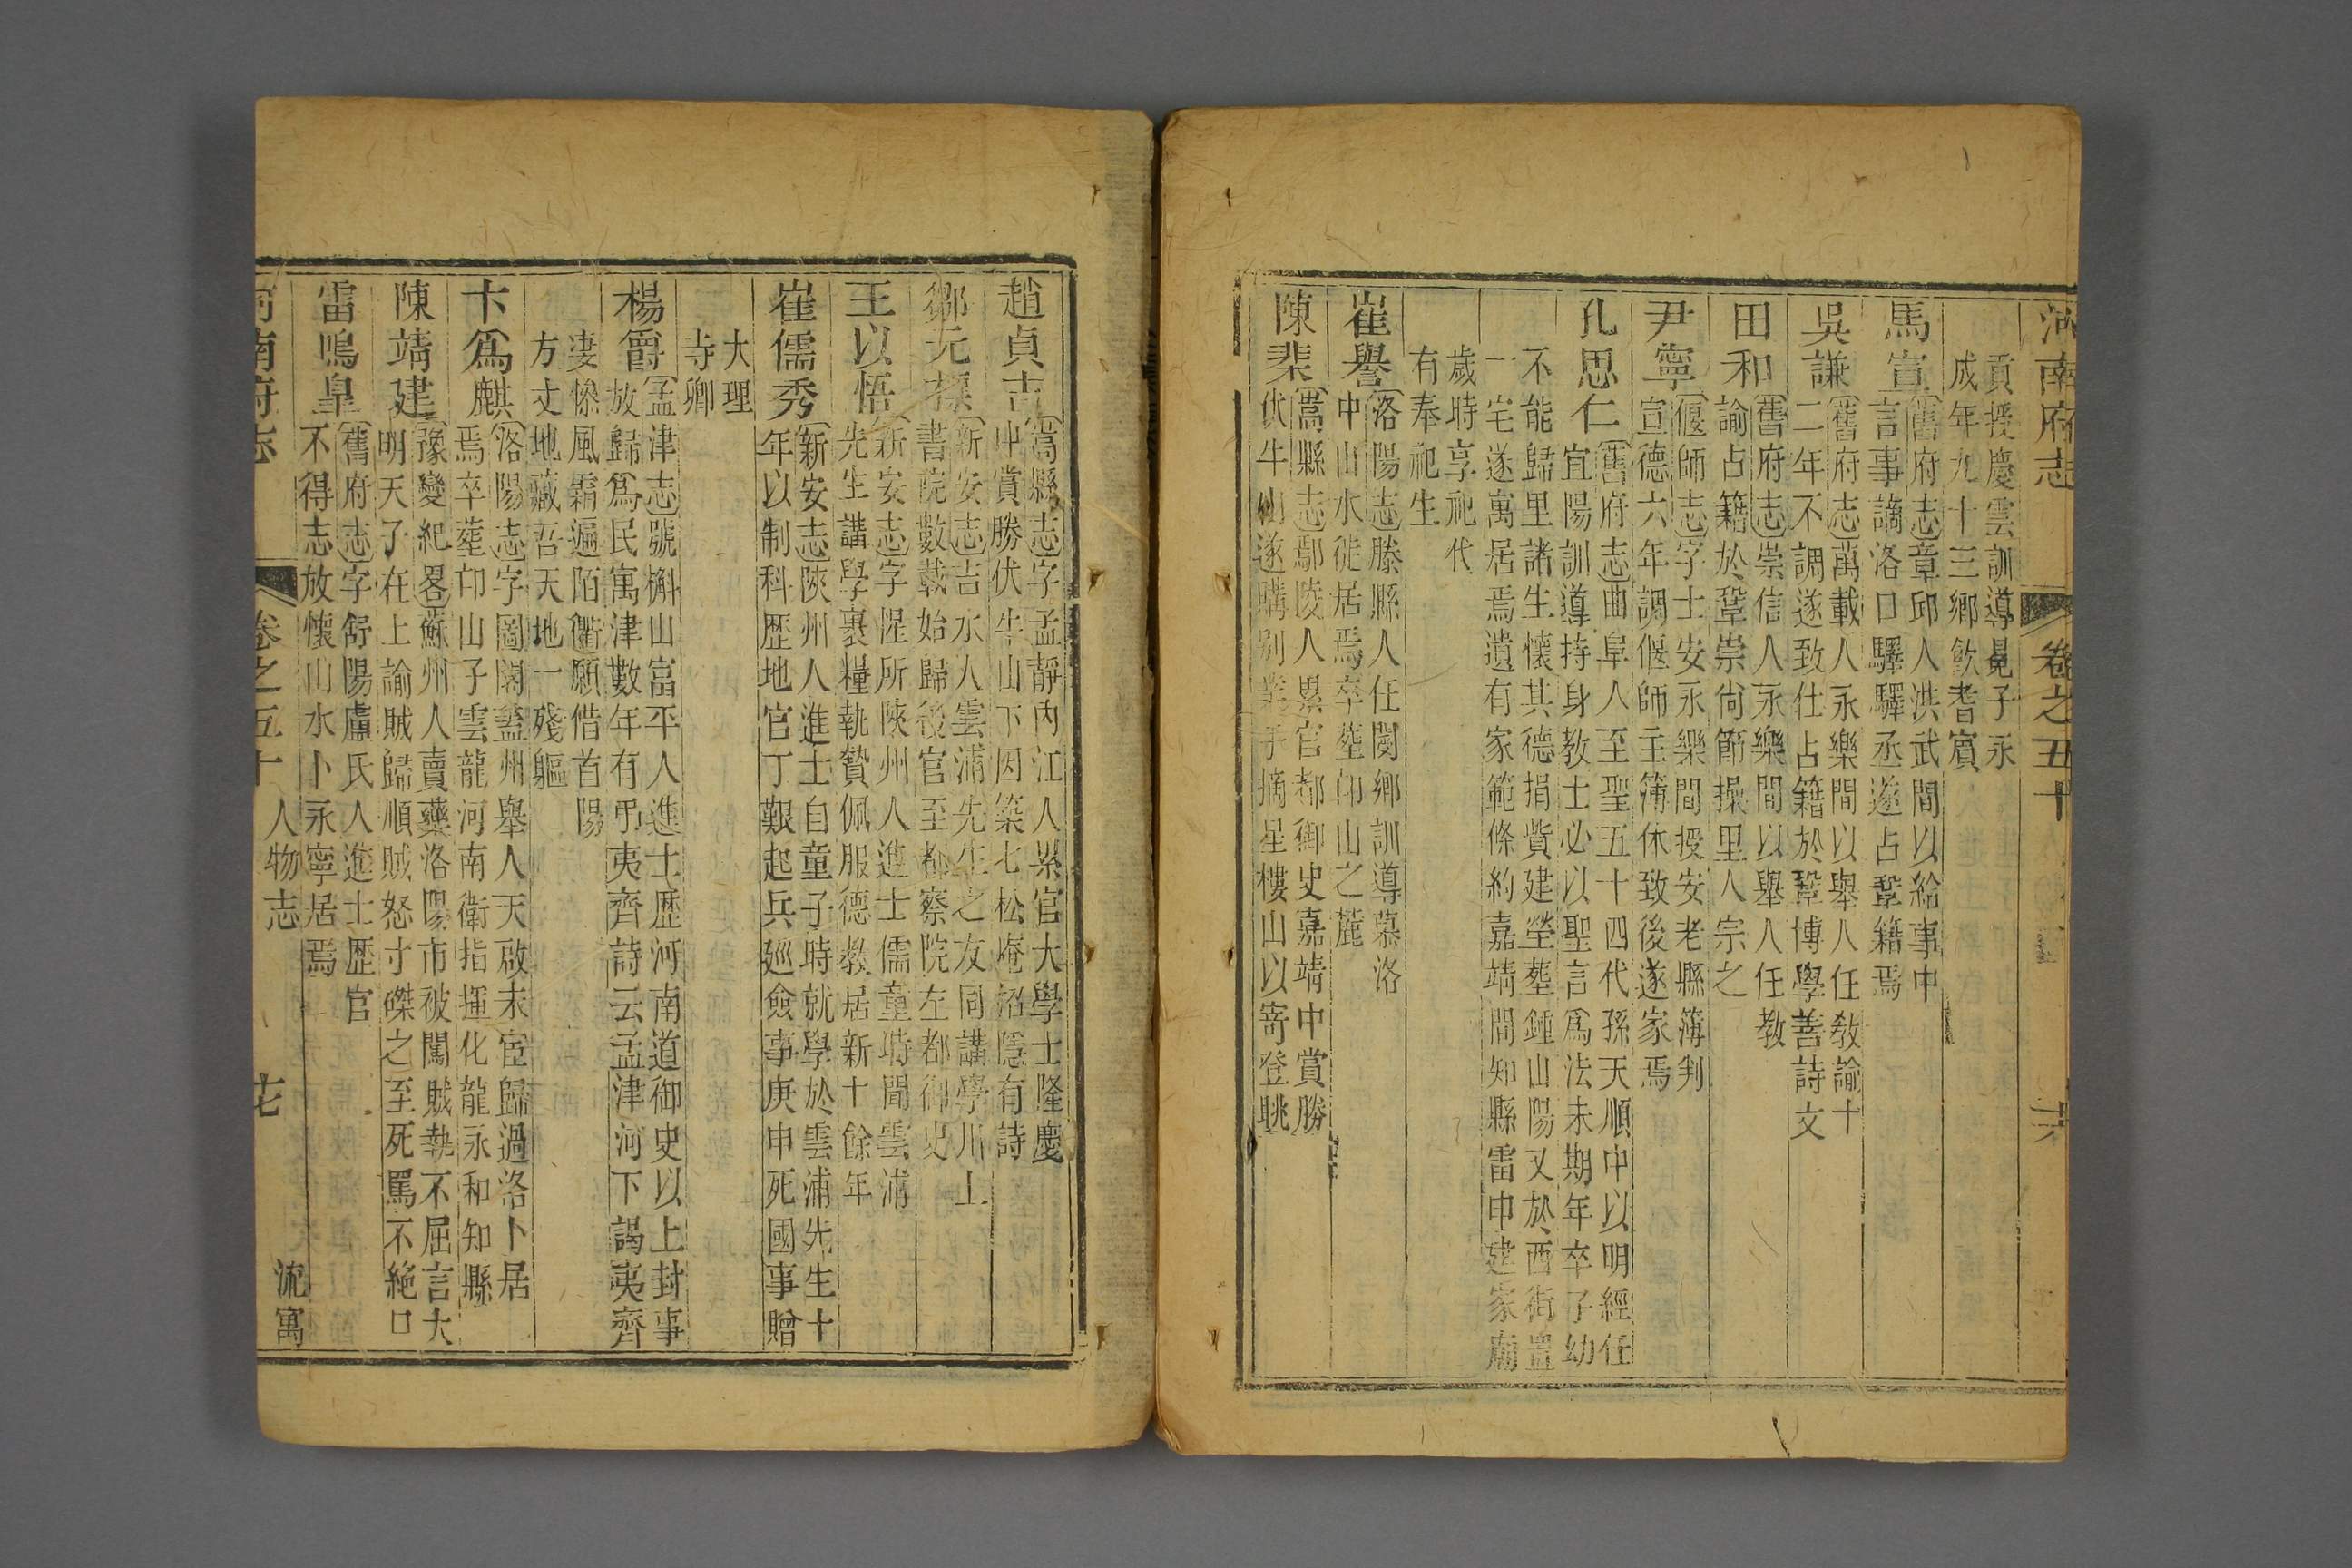 河南府志
卷之五十
六
貢授慶雲訓導晃子永
成年九十三鄉飲耆賓
馬宣
舊府志章邱人洪武間以給事中
言事謫洛口驛驛丞遂占鞏籍焉
吳謙
舊府志萬載人永樂間以舉人任教諭十
二年不調遂致仕占籍於鞏博學善詩文
田和
舊府志崇信人永樂間以舉人任教
諭占籍於鞏崇尚節操里人宗之
尹寧
偃師志字士安永樂間授安老縣簿判
宣德六年調偃師主簿休致後遂家焉
孔思仁
舊府志曲阜人至聖五十四代孫天順中以明經任
宜陽訓導持身教士必以聖言為法未期年卒子幼
不能歸里諸生懷其德捐貲建塋葬鍾山陽又於西街置
一宅遂寓居焉遺有家範條約嘉靖間知縣雷申建家廟
歲時享祀代
有奉祀生
崔譽
洛陽志滕縣人任閿鄉訓導慕洛
中山水徙居焉卒塟印山之麓
陳棐
嵩縣志鄢陵人累官都御史嘉靖中賞勝
伏牛山遂購别業手摘星樓山以寄登眺
趙貞吉
嵩縣志字孟靜內江人累官大學士隆慶
中賞勝伏牛山下因築七松庵招隱有詩
鄒元標
新安志吉水人雲浦先生之友同講學川上
書院數載始歸後官至都察院左都御史
王以悟
新安志字惺所陝州人進士儒童時聞雲浦
先生講學裹糧執贄佩服德教居新十餘年
崔儒秀
新安志陝州人進士自童子時就學於雲浦先生十
年以制科歷地官丁艱起兵廵僉事庚申死國事贈
大理
寺卿
楊爵
孟津志號槲山富平人進士歷河南道御史以上封事
放歸為民寓津數年有弔夷齊詩云孟津河下謁夷齊
凄慘風霜遍陌衢願借首陽
方丈地藏吾天地一殘軀
卞為麒
洛陽志字圖閣蓋州舉人天啟末宦歸過洛卜居
焉卒葬印山子雲龍河南衛指揮化龍永和知縣
陳靖建
豫變紀畧蘇州人賣藥洛陽市被闖賊執不屈言大
明天子在上諭賊歸順賊怒寸磔之至死罵不絕口
雷鳴皐
舊府志字舒陽盧氏人進士歷官
不得志放懷山水卜永寧居焉
河南府志
卷之五十
人物志
流寓
七